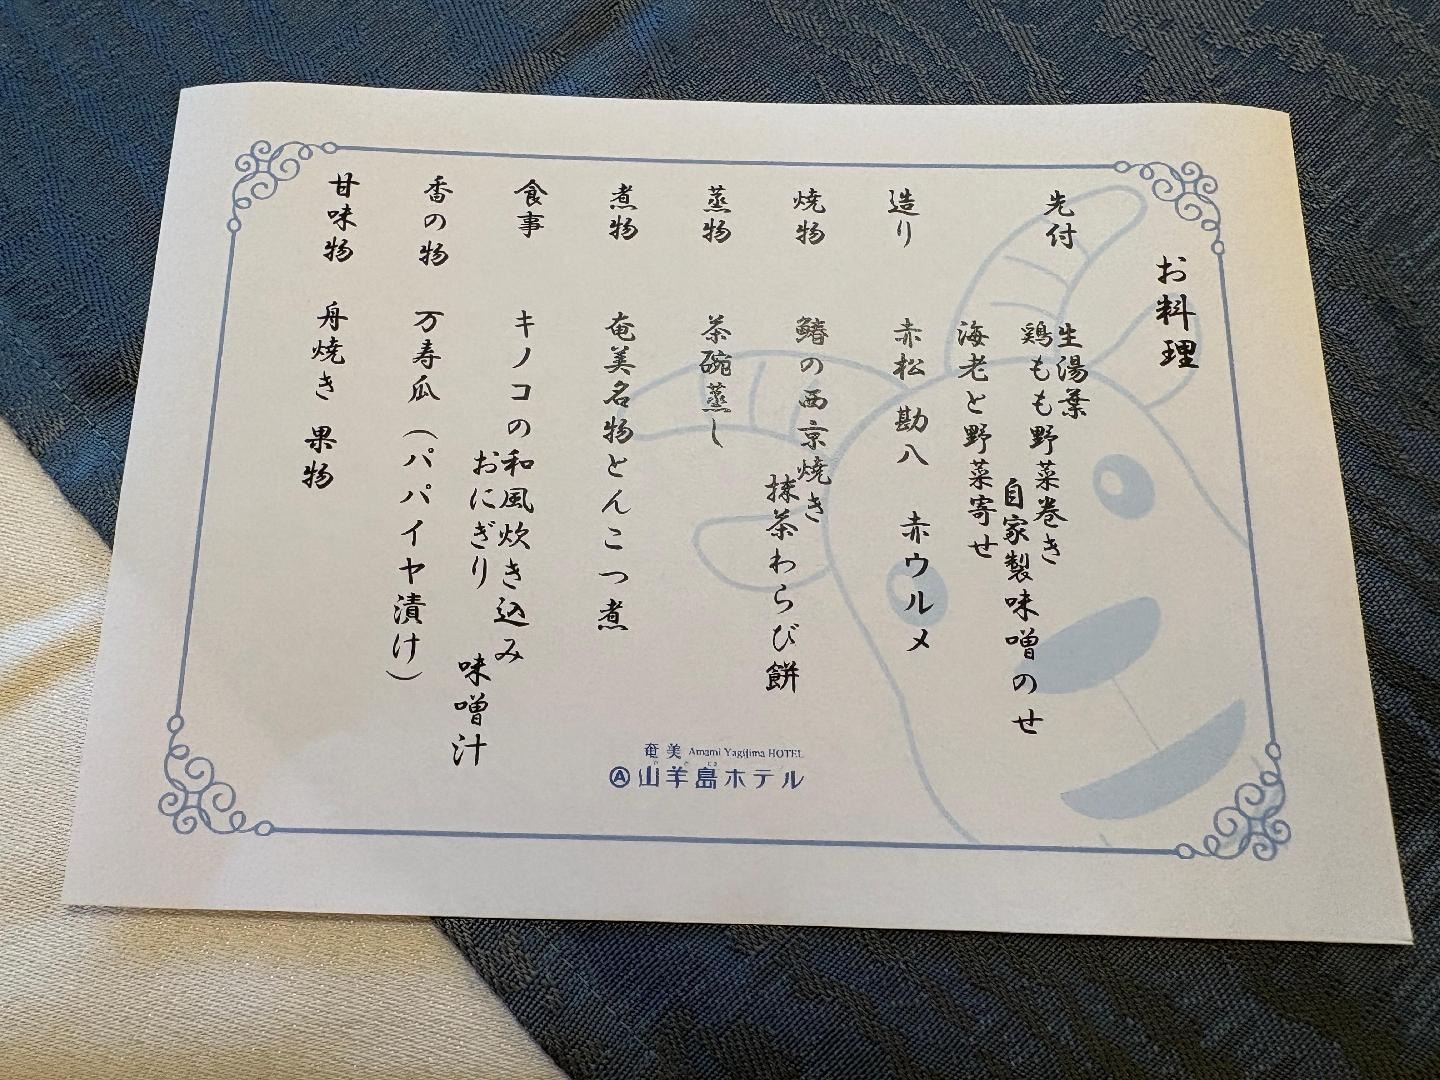 お料理
先付
生湯葉
鶏もも野菜巻き
自家製味噌のせ
海老と野菜寄せ
造り
赤松 勘八 赤ウルメ
焼物
鰆の西京焼き
抹茶わらび餅
蒸物
茶碗蒸し
煮物
奄美名物とんこつ煮
食事
キノコの和風炊き込み
おにぎり
味噌汁
香の物
万寿瓜(パパイヤ漬け)
甘味物
舟焼き 果物
奄美 Amami Yagijima HOTEL
Ⓐ山羊島ホテル